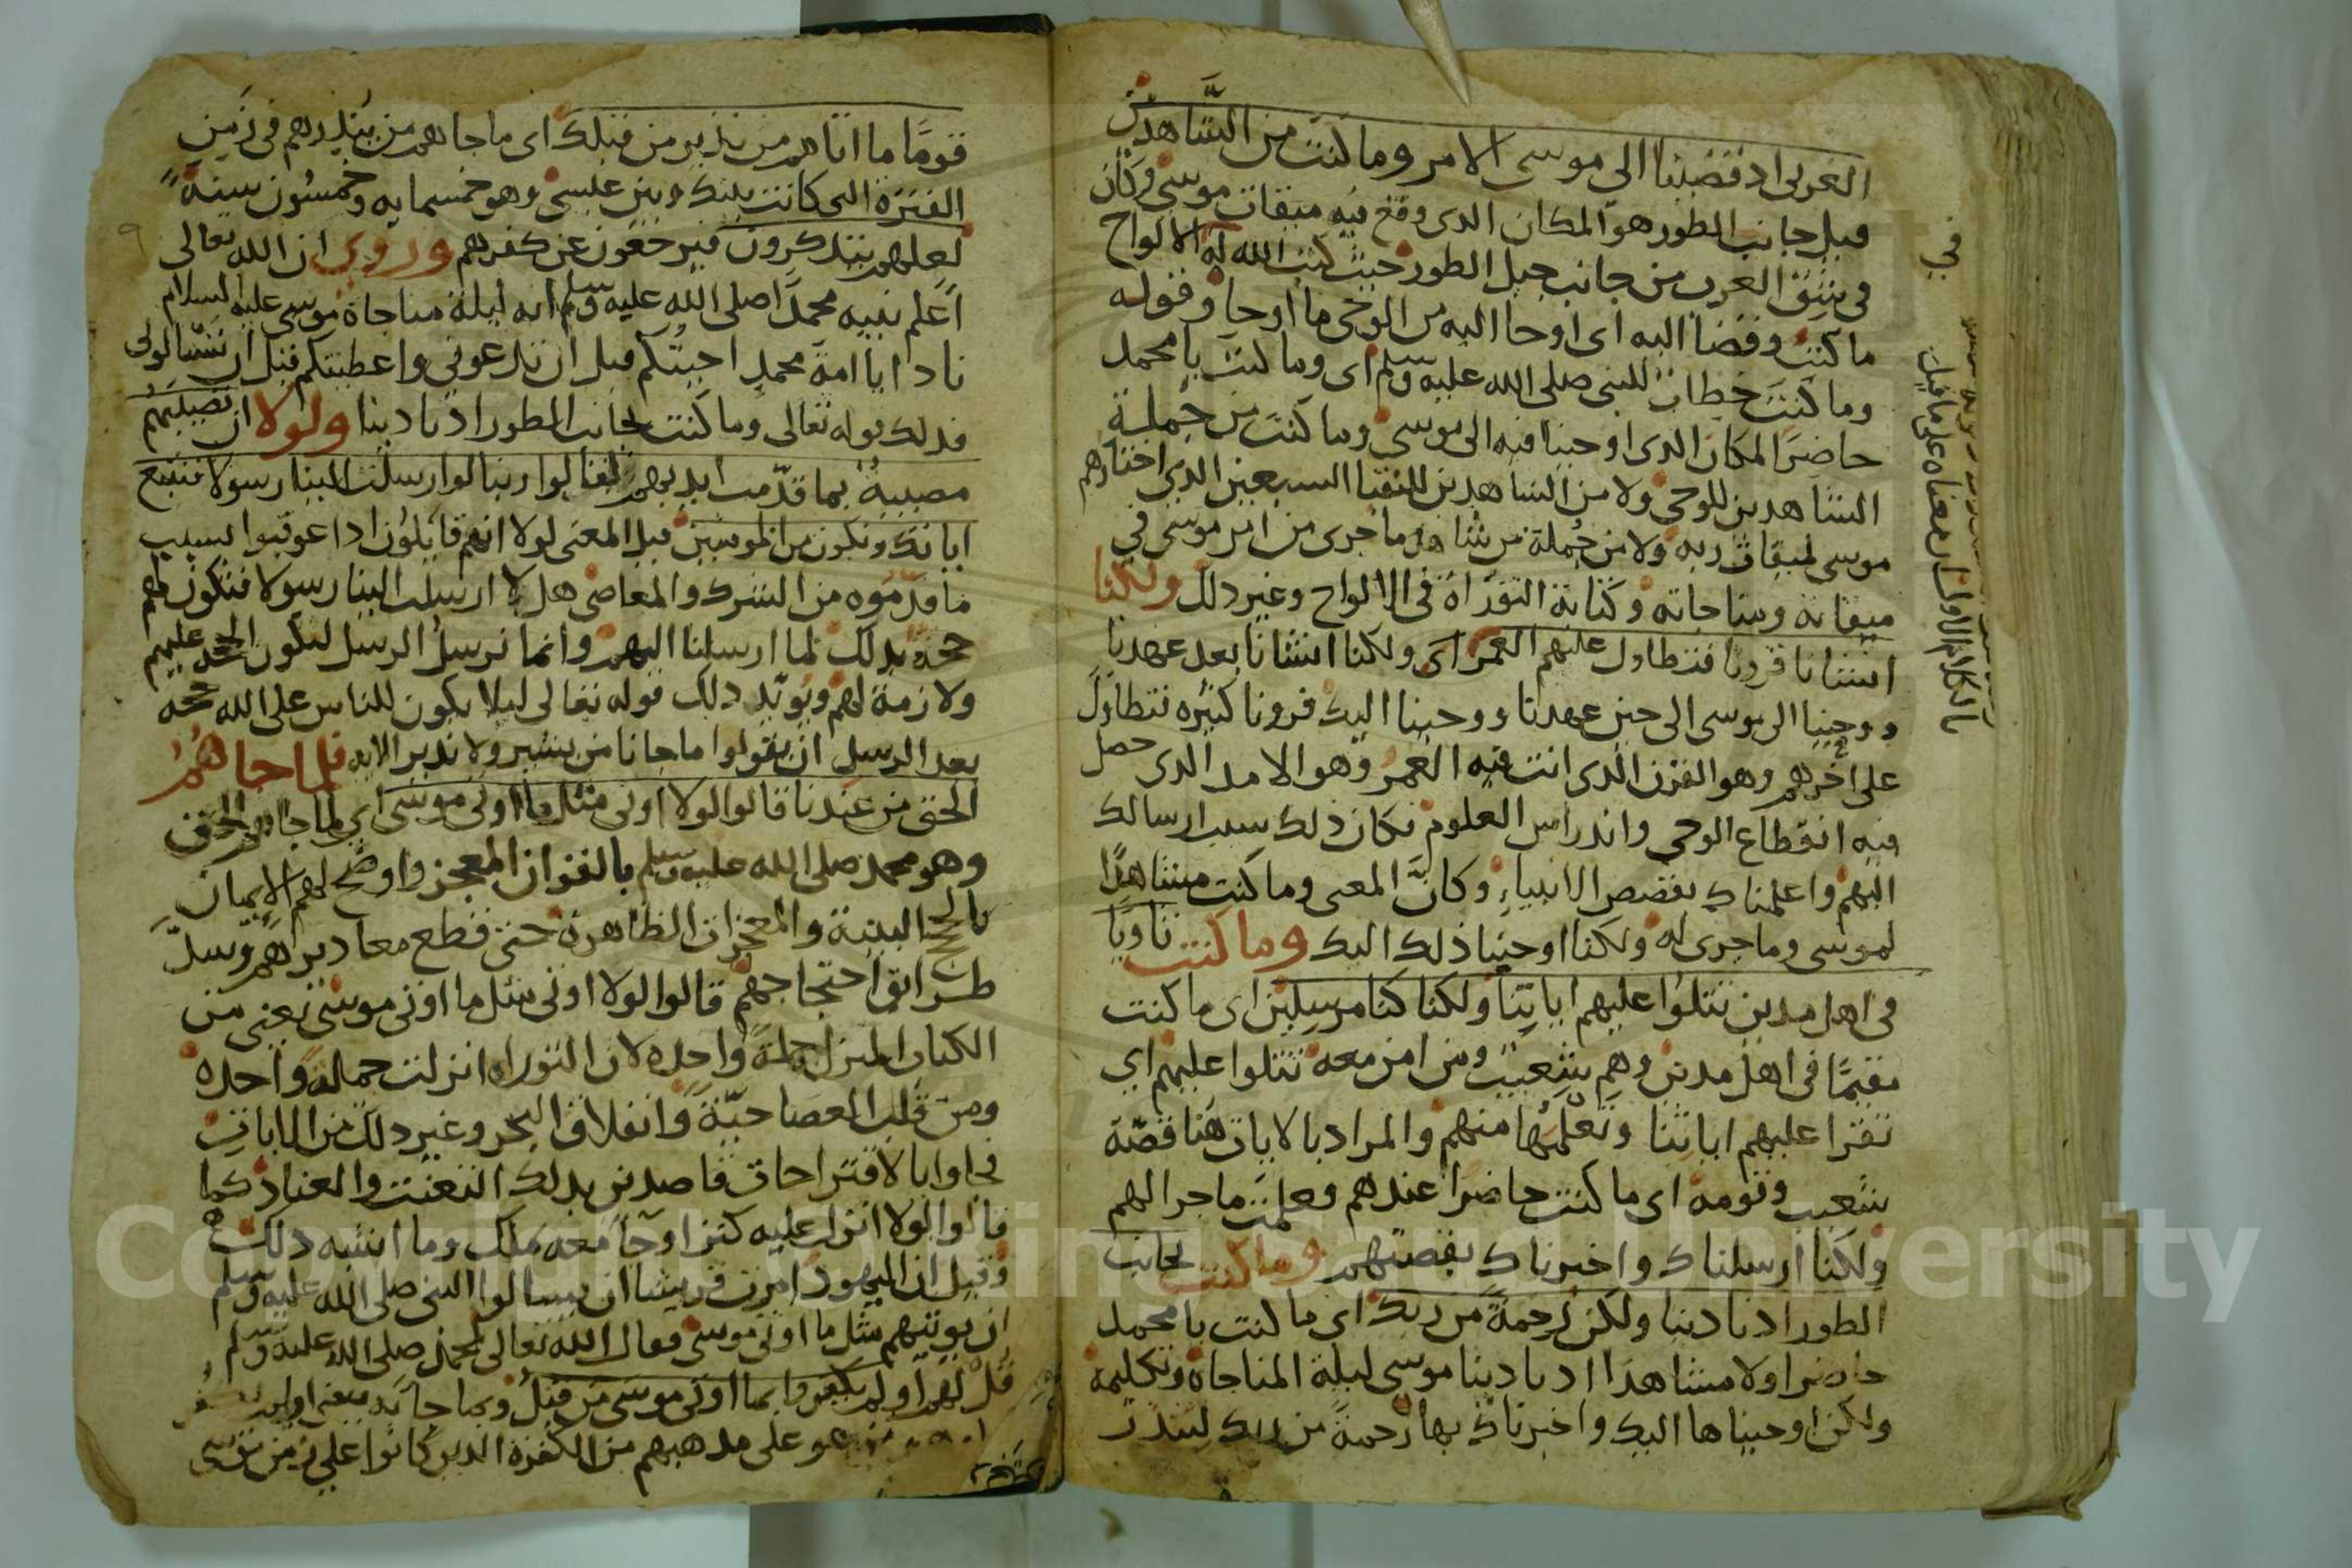 الغربى اذ قضينا الى موسى الامر وما كنت من الشاهدين
قيل جانب الطور هو المكان الذى وقع فيه ميقات موسى وكان
فى شق الغرب من جانب جبل الطور حيث كتب الله له الالواح
ما كنت وقضا اليه اى اوحا اليه من الوحى ما اوحا وقوله
وما كنت خطاب للنبى صلى الله عليه وسلم اى وما كنت يا محمد
حاضرا المكان الذى اوحينا فيه الى موسى وما كنت من جملة
الشاهدين للوحى ولا من الشاهدين للنقبا السبعين الذى اختارهم
موسى لميقات ربه ولا من جملة من شاهد ما جرى من امر موسى في
ميقاته ومناجاته وكتابة التوراة فى الالواح وغير ذلك ولكنا
انشانا قرونا فتطاول عليهم العمر اى ولكنا انشانا بعد عهدنا
ووحينا الى موسى الى حين عهدنا ووحينا اليك قرونا كثيره فتطاول
على اخرهم وهو القرن الذى انت فيه العمر وهو الامد الذى حصل
فيه انقطاع الوحى واندراس العلوم فكان ذلك سبب ارسالك
اليهم واعلمناك بقصص الانبياء وكان المعنى وما كنت مشاهدا
لموسى وما جرى له ولكنا اوحينا ذلك اليك وما كنت ثاويا
فى اهل مدين تتلوا عليهم اياتنا ولكنا كنا مرسلين اى ما كنت
مقيما فى اهل مدين وهم شعيب ومن امن معه تتلوا عليهم اي
تقرا عليهم اياتنا وتعلمها منهم والمراد بالايات هنا قصة
شعيب وقومه اى ما كنت حاضرا عندهم وعلمت ما جرا لهم
ولكنا ارسلناك واخبرناك بقصتهم وما كنت بجانب
الطور اذ نادينا ولكن رحمة من ربك اى ما كنت يا محمد
حاضرا ولا مشاهدا اذ نادينا موسى ليلة المناجاة وتكليمه
ولكن اوحيناها اليك واخبرناك بها رحمة من ربك لتنذر
في
ما الكلام الاول معناه على ما قيل
قوما ما اتاهم من نذير من قبلك اى ما جاهم من ينذرهم فى زمن
الفترة التى كانت بينك وبين عيسى وهو خمسمايه وخمسون سنة
لعلهم يتذكرون فيرجعون عن كفرهم وروى ان الله تعالى
اعلم نبيه محمدا صلى الله عليه وسلم انه ليلة مناجاة موسى عليه السلام
نادا يا امة محمد اجبتكم قبل ان تدعونى واعطيتكم قبل ان تسالونى
فذلك قوله تعالى وما كنت بجانب الطور اذ نادينا ولولا ان تصيبهم
مصيبة بما قدمت ايديهم فيقولوا ربنا لولا ارسلت الينا رسولا فنتبع
اياتك ونكون من المومنين قيل المعنى لولا انهم قايلون اذا عوقبوا بسبب
ما قدموه من الشرك والمعاصى هلا ارسلت الينا رسولا فتكون لهم
حجة بذلك لما ارسلنا اليهم وانما نرسل الرسل لتكون الحجة عليهم
ولازمة لهم ويؤيد ذلك قوله تعالى ليلا يكون للناس على الله حجه
بعد الرسل ان يقولوا ما جانا من بشير ولا نذير الايه فلما جاهم
الحق من عندنا قالوا لولا اوتى مثل ما اوتى موسى اى لما جاهم الحق
وهو محمد صلى الله عليه وسلم بالقران المعجز واوضح لهم الايمان
بالحج البينة والمعجزات الظاهرة حتى قطع معاديراهم وسد
طرايق احتجاجهم قالوا لولا اوتى مثل ما اوتى موسى يعنى من
الكتاب المنزل جملة واحده لان التوراه انزلت جملة واحده
ومن قلب العصا حية وانفلاق البحر وغير ذلك من الايات
فجاوا بالاقتراحات قاصدين بذلك التعنت والعناد كما
قالوا لولا انزل عليه كنز او جا معه ملك وما اشبه ذلك
وقيل ان اليهود امرت قريشا ان يسالوا النبى صلى الله عليه وسلم
ان يوتيهم مثل ما اوتى موسى فقال الله تعالى لمحمد صلى الله عليه وسلم
قل لهم اولم يكفروا بما اوتى موسى من قبل وبما جا به يعنى اولم
هو على مذهبهم من الكفرة الذين كانوا على زمن موسى